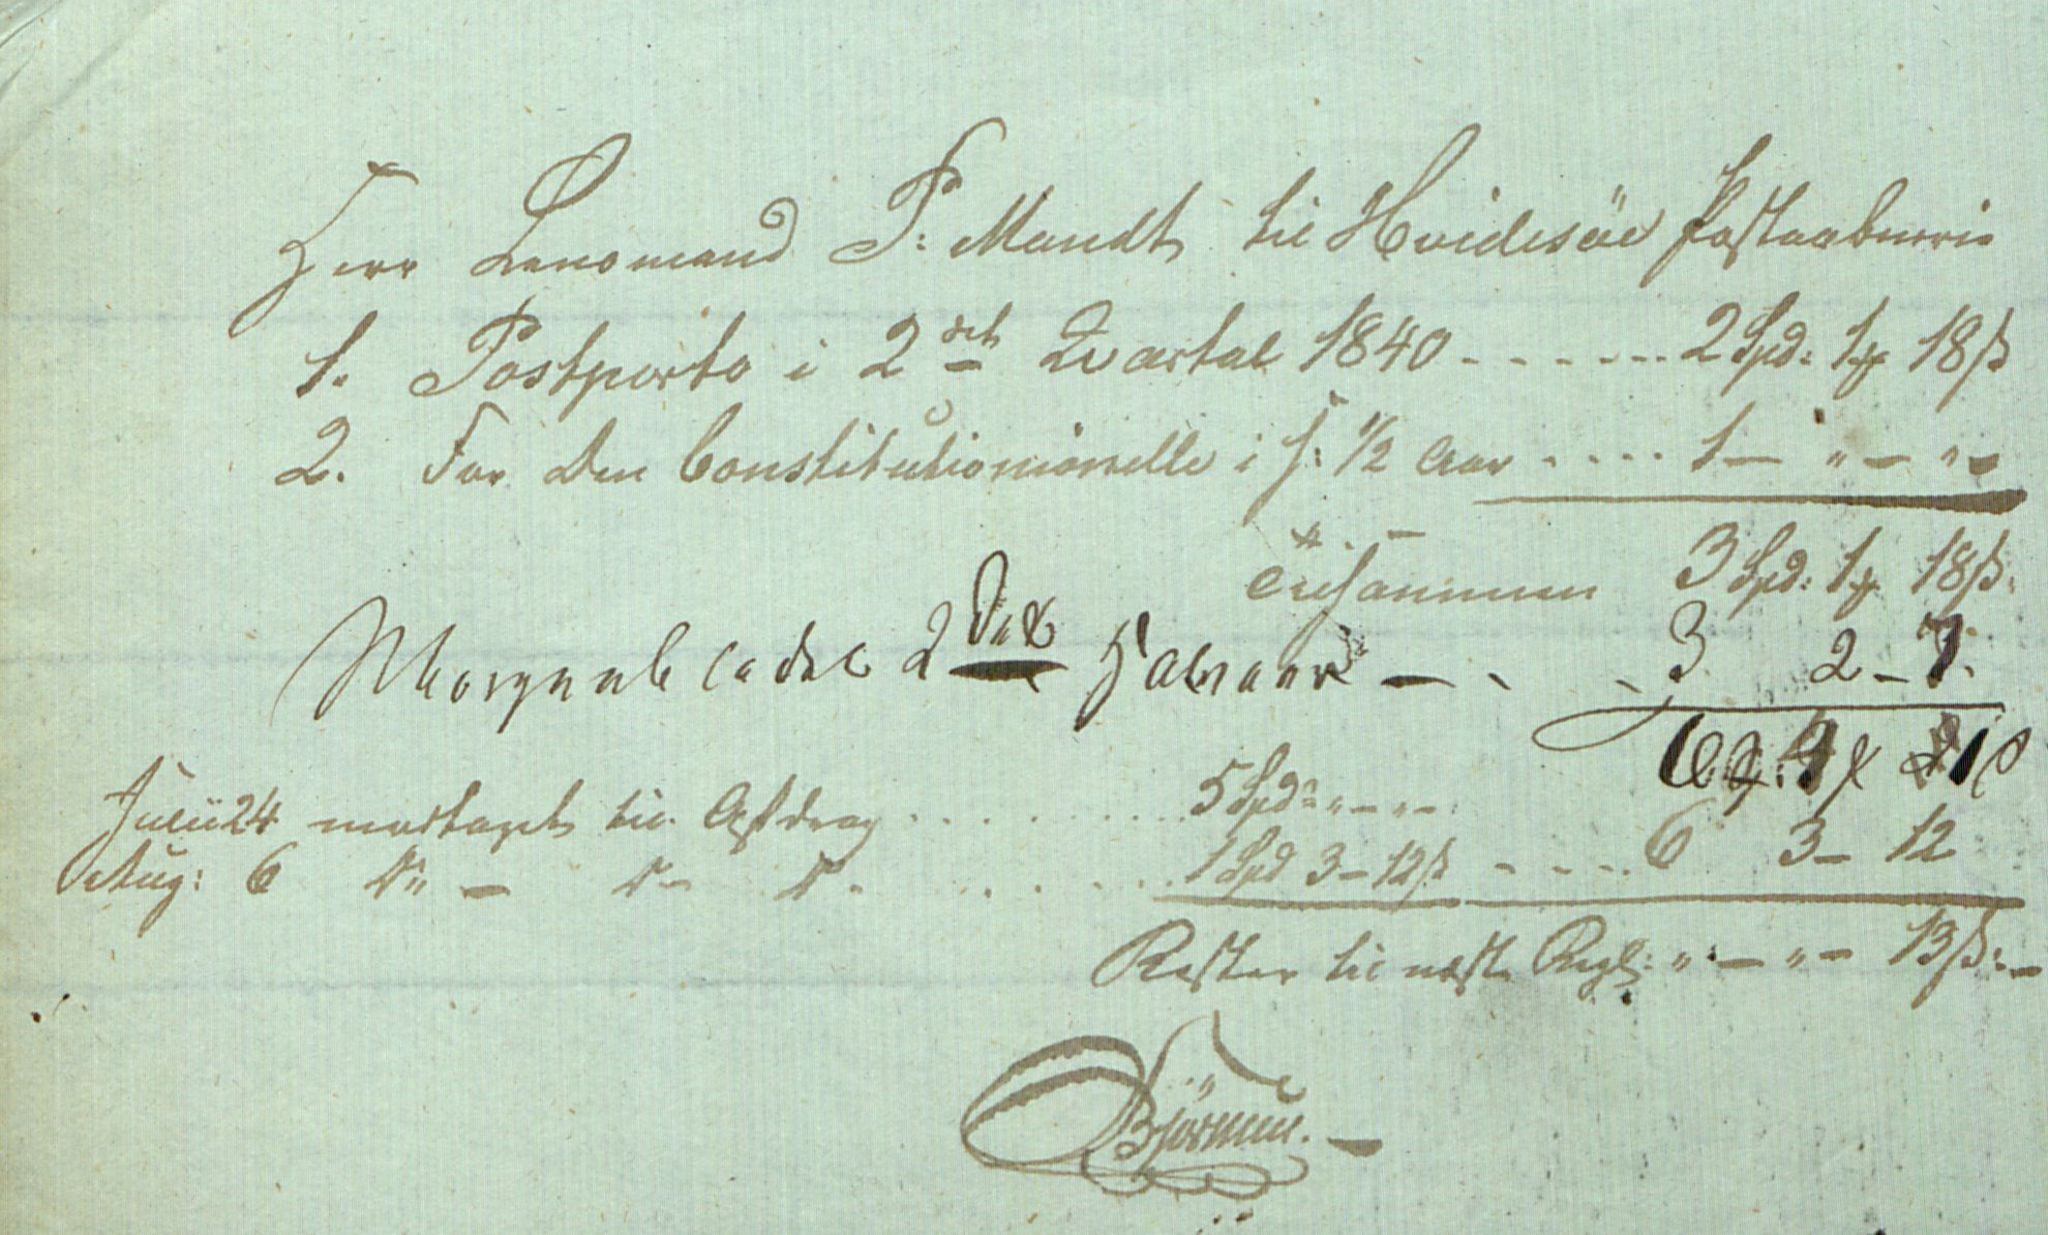 Herr Lensmand P: Mandt til Hvidesöe Postaabnerie
1. Postporto i 2det Qvartal 1840 - - - - - - 2 Spd: 1 18 ß
2. For Den Constitutionionelle i 1: 1/2 Aar - - - - 1 — " — " —
Tilsammen 3 Spd: 1 18 ß:
Morgenbladet 2det Halvaar — - - 3 2 - 7.
Julii 24 modtaget til Afdrag . . . . . . . . 5 Spd: " — " —
Aug: 6 Do — Do Do . . . . . 1 Spd 3 — 12 ß - - - - 6 3 — 12
Rester til næste Regl: " — " — 13 ß: —
Björnsen. —